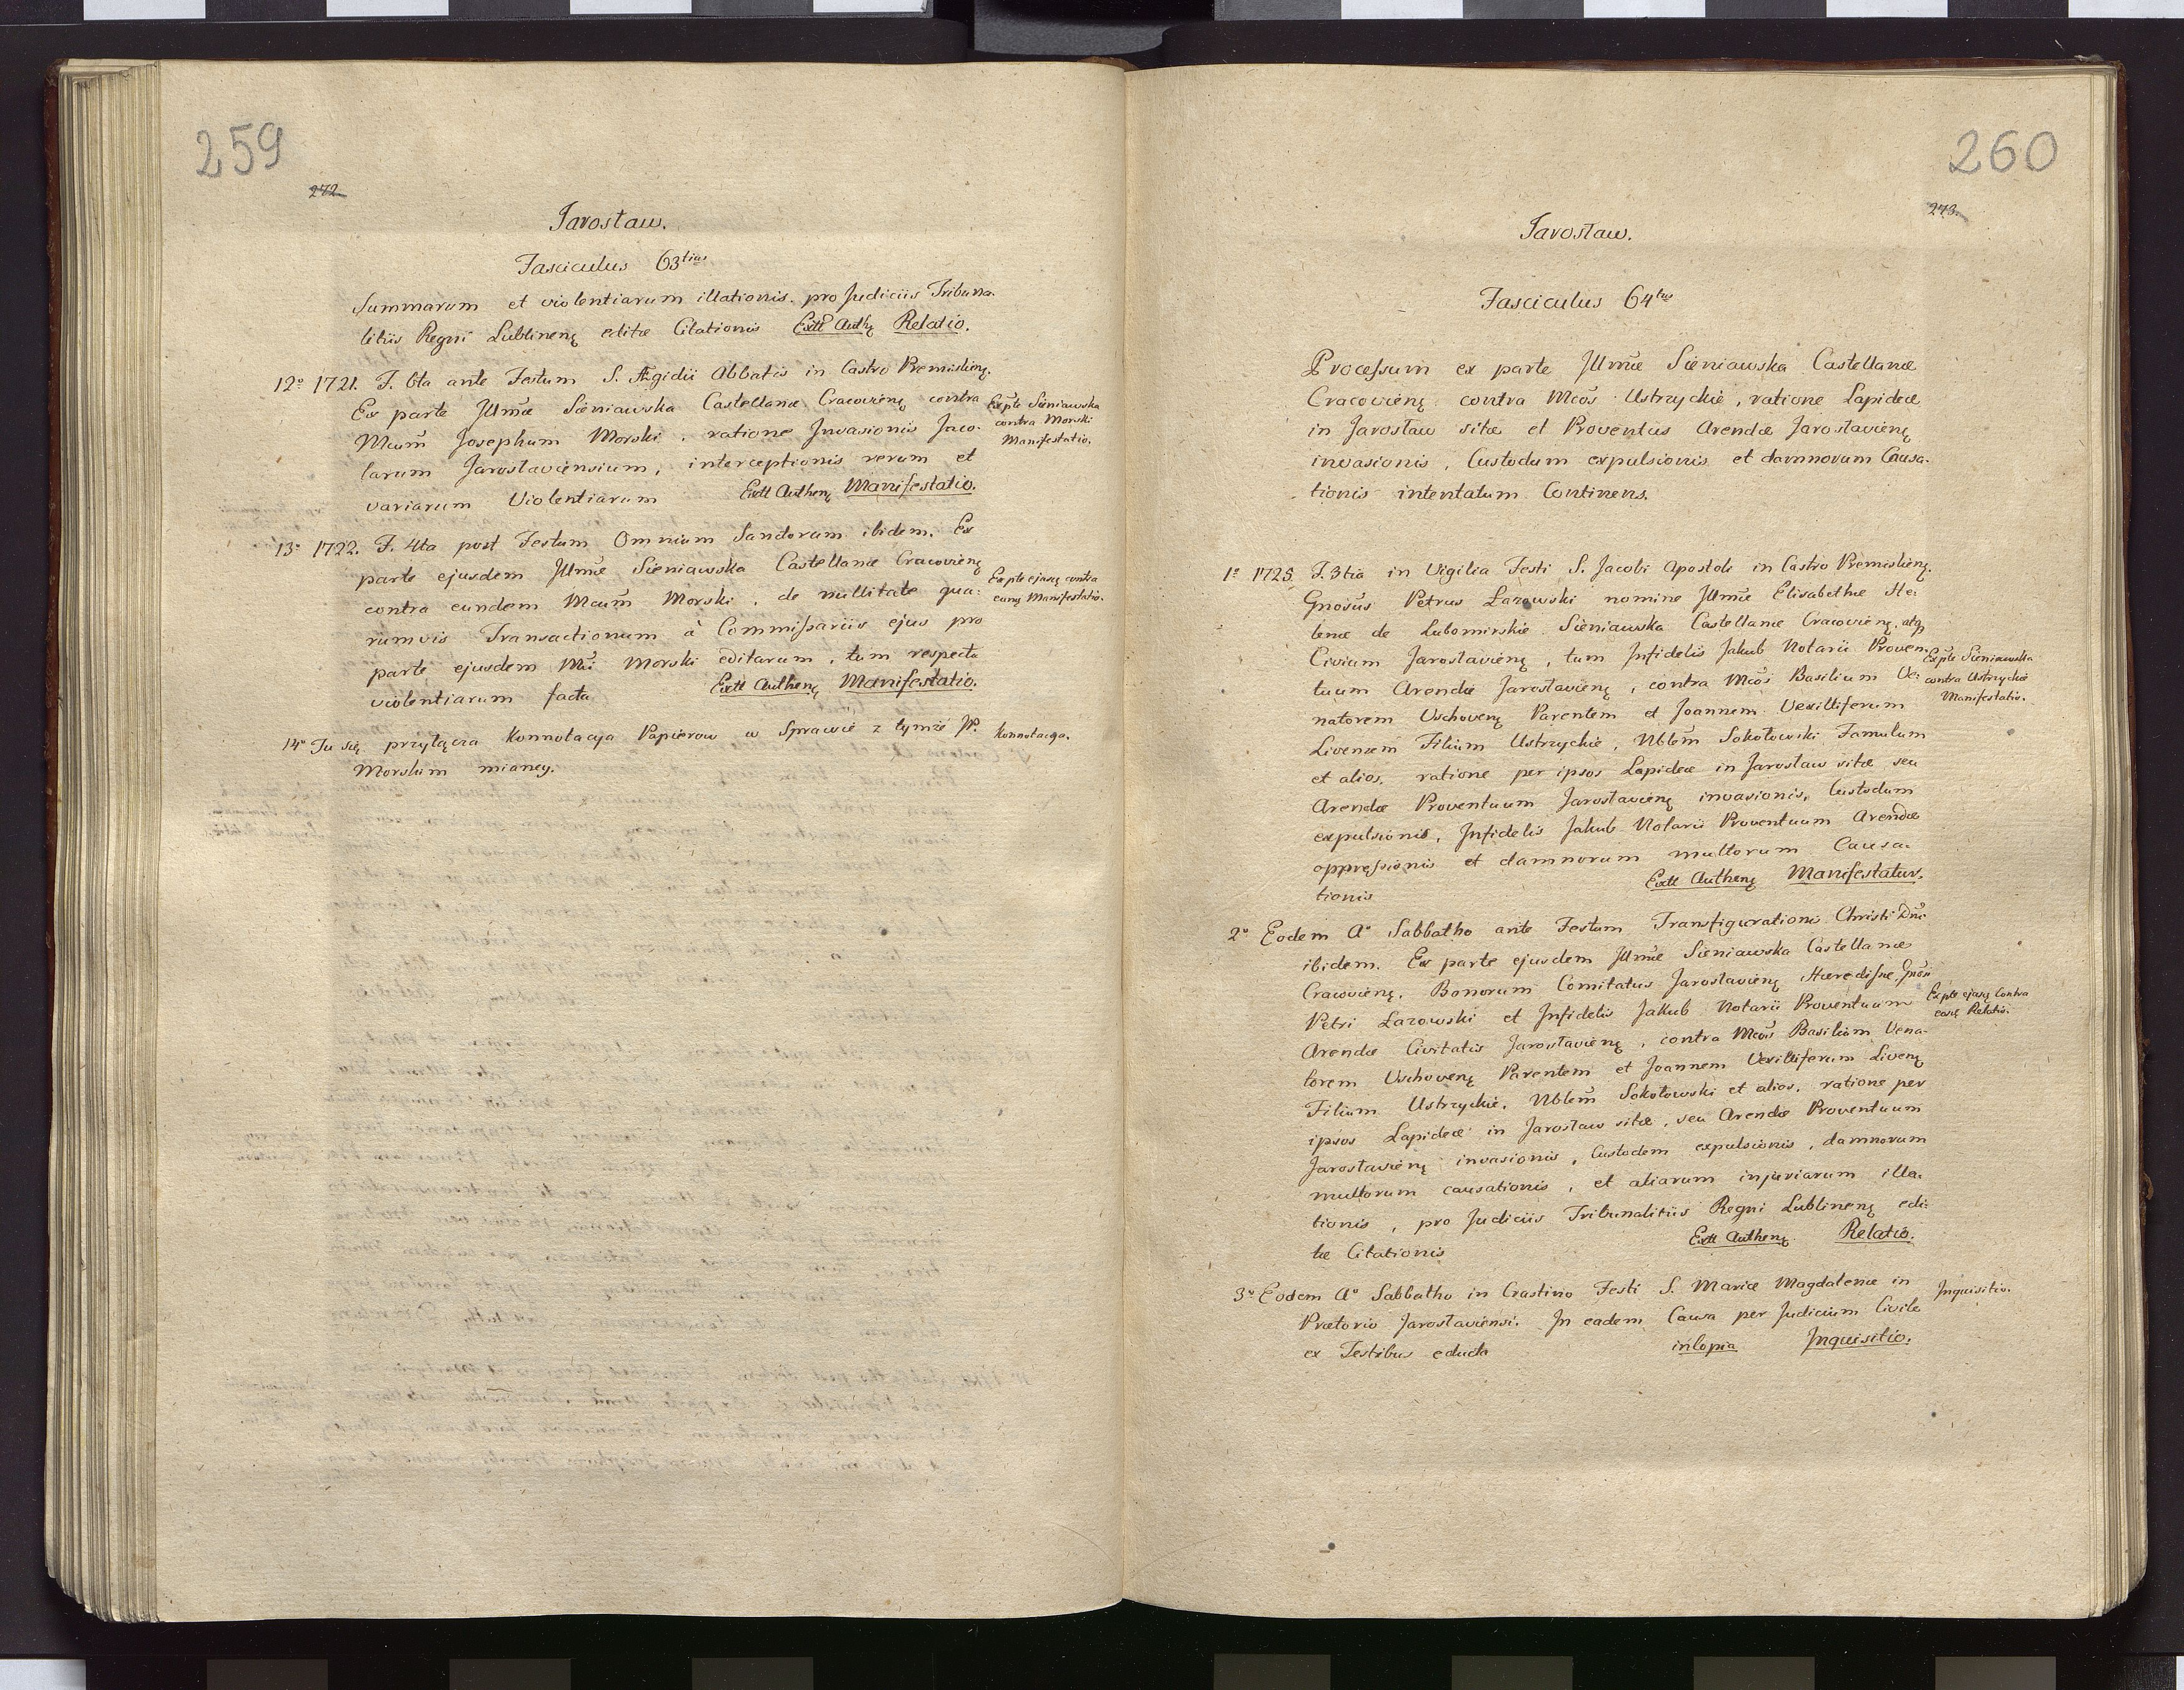 259
272.
Jarosław.
Fasciculus 63tius
Summarum et violentiarum illationis pro Judiciis Tribuna-
litiis Regni Lublineñ editæ Citationis Extt Autheñ Relatio.
12º 1721. F. 6ta ante Festum S. Ægidii Abbatis in Castro Premislieñ.
Ex parte Illmæ Sieniawska Castellanæ Cracovieñ contra
Mcum Josephum Morski, ratione Invasionis Inco-
larum Jarostaviensium, interceptionis rerum et
variarum Violentiarum Extt Autheñ Manifestatio.
Ex pte Sieniawska
contra Morski
Manifestatio.
13º 1722. F. 4ta post Festum Omnium Sanctorum ibidem. Ex
parte ejusdem Illmæ Sieniawska Castellanæ Cracovieñ
contra eundem Mcum Morski, de nullitate qua-
rumvis Transactionum à Commissariis ejus pro
parte ejusdem Mci Morski editarum, tum respectu
violentiarum facta Extt Autheñ Manifestatio.
Ex pte ejusq contra
eunq Manifestatio.
14º Tu się przyłącza Konnotacya Papierow w Sprawie z tymże JP.
Morskim mianey.
Konnotacya.
260
273.
Jarosław.
Fasciculus 64tus
Processum ex parte Illmæ Sieniawska Castellanæ
Cracovieñ contra Mcos Ustrzyckie, ratione Lapideæ
in Jarosław sitæ et Proventus Arendæ Jarostavieñ
invasionis, Custodum expulsionis et damnorum Causa-
tionis intentatum Continens.
1º 1725. F. 3tia in Vigilia Festi S. Jacobi Apostoli in Castro Premislieñ.
Gnosus Petrus Łazowski nomine Illmæ Elisabethæ He-
lenæ de Lubomirskie Sieniawska Castellanæ Cracovieñ, atq
Civium Jarostavieñ, tum Infidelis Jakub Notarii Proven-
tuum Arendæ Jarostavieñ, contra Mcos Basilium Ve-
natorem Wschoveñ Parentem et Joannem Vexilliferum
Livensem Filium Ustrzyckie, Nblem Sokołowski Famulum
et alios, ratione per ipsos Lapideæ in Jarosław sitæ seu
Arendæ Proventuum Jarostavieñ invasionis, Custodum
expulsionis, Infidelis Jakub Notarii Proventuum Arendæ
oppressionis et damnorum multorum Causa-
tionis Extt Autheñ Manifestatur.
Ex pte Sieniawska
contra Ustrzyckie
Manifestatio.
2º Eodem Aº Sabbatho ante Festum Transfigurationis Christi Dni
ibidem. Ex parte ejusdem Illmæ Sieniawska Castellanæ
Cracovieñ, Bonorum Comitatus Jarostavieñ Hæredissæ, Gnosi
Petri Łazowski et Infidelis Jakub Notarii Proventuum
Arendæ Civitatis Jarostavieñ, contra Mcos Basilium Vena-
torem Wschoveñ Parentem et Joannem Vexilliferum Liveñ
Filium Ustrzyckie, Nblem Sokołowski et alios, ratione per
ipsos Lapideæ in Jarosław sitæ, seu Arendæ Proventuum
Jarostavieñ invasionis, Custodem expulsionis, damnorum
multorum causationis, et aliarum injuriarum illa-
tionis, pro Judiciis Tribunalitiis Regni Lublineñ edi-
tæ Citationis Extt Autheñ Relatio.
Ex pte ejusq contra
eosq Relatio.
3º Eodem Aº Sabbatho in Crastino Festi S. Mariæ Magdalenæ in
Prætorio Jarostaviensi. In eadem Causa per Judicium Civile
ex Testibus educta in Copia Inquisitio.
Inquisitio.